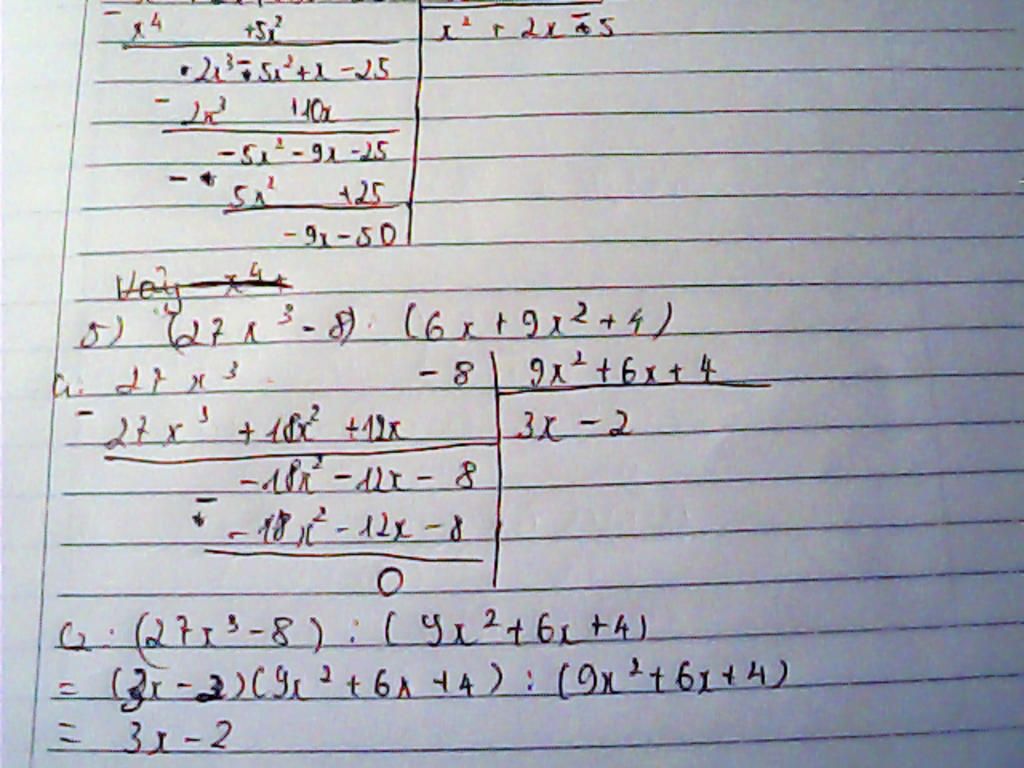 - x⁴ +5x² | x² + 2x - 5
2x³ - 5x² + x - 25
- 2x³ +10x
-5x² - 9x - 25
- 5x² +25
-9x - 50
Vậy x⁴ +
5) (27x³ - 8) : (6x + 9x² + 4)
27x³ - 8 | 9x² + 6x + 4
- 27x³ + 18x² + 12x | 3x - 2
-18x² - 12x - 8
- -18x² - 12x - 8
0
C₂ : (27x³ - 8) : (9x² + 6x + 4)
= (3x - 2)(9x² + 6x + 4) : (9x² + 6x + 4)
= 3x - 2